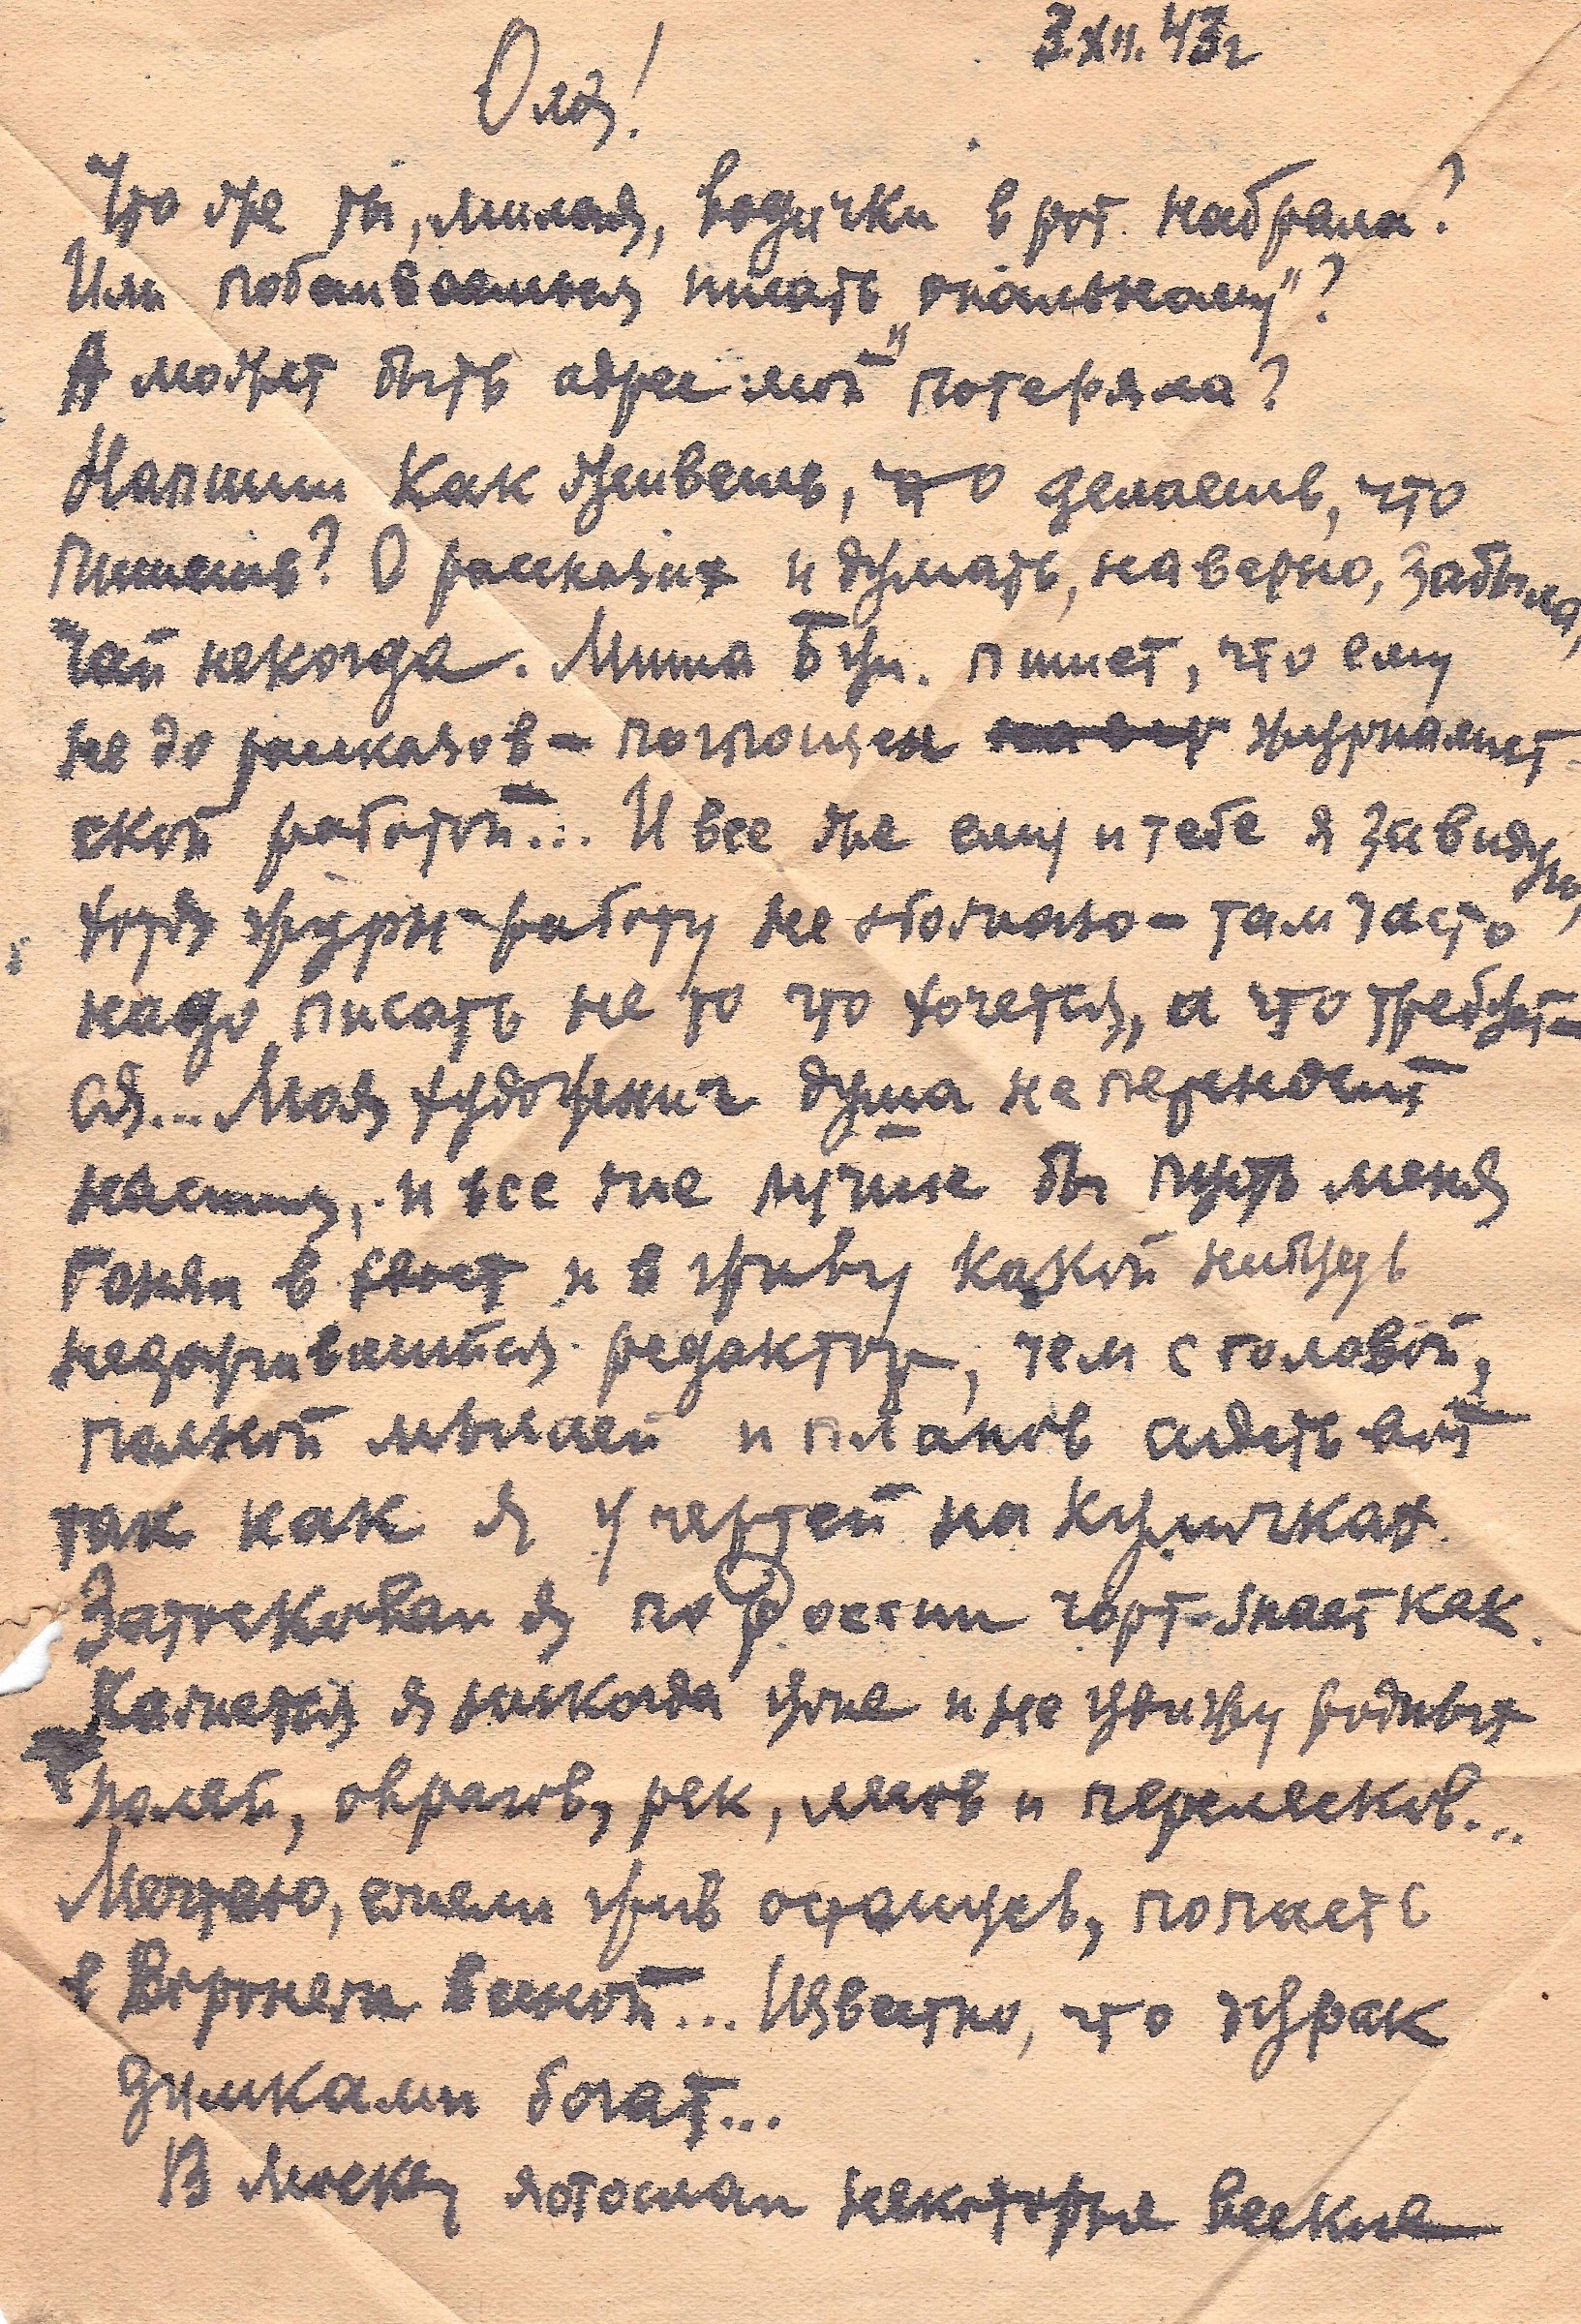 3.XII.43г
Оля!
Что же ты, милая, водички в рот набрала?
Или побаиваешься писать „опальному"?
А может быть адрес мой потеряла?
Напиши как живешь, что делаешь, что
пишешь? О рассказах и думать, наверно, забыла,
Чай некогда. Миша Бул. пишет, что ему
не до рассказов – поглощен журналист-
ской работой... И все же ему и тебе я завидую,
хотя журн-работу не обожаю – там часто
надо писать не то что хочется, а что требует-
ся... Моя художнич душа не переносит
насилия, и все же лучше бы пусть меня
гонял в хвост и в гриву какой нибудь
недоучившийся редактор, чем с головой,
полной мыслей и планов сидеть вот
так как я у чертей на куличках.
Затосковал я по России чорт-знает как.
Кажется я никогда уже и не увижу родных
полей, оврагов, рек, лесов и перелесков...
Мечтаю, ежели жив останусь, попасть
в Воронеж весной... Известно, что дурак
думками богат...
В Москву я отослал некоторые веские